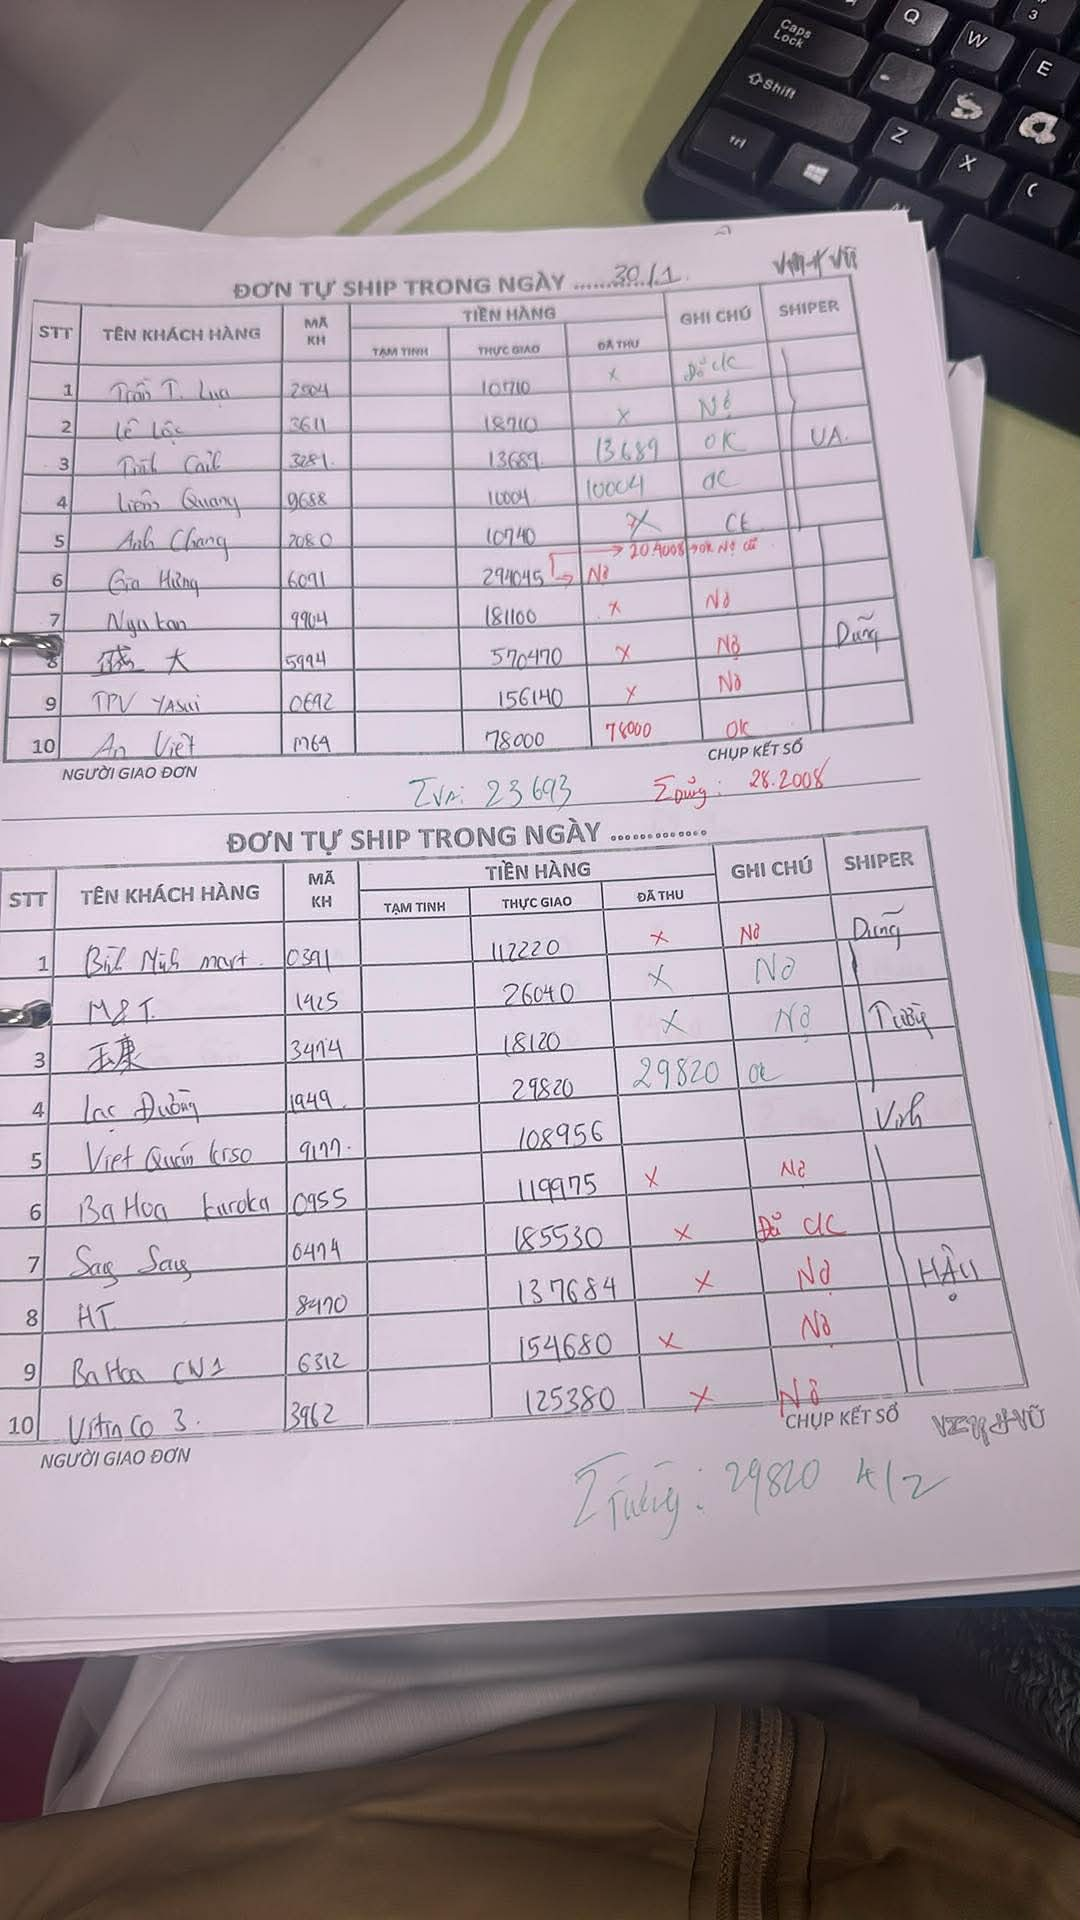 Q W E 3
Caps Lock
Shift
Z X C
S a
ĐƠN TỰ SHIP TRONG NGÀY ............ 30/1.
STT TÊN KHÁCH HÀNG MÃ KH TIỀN HÀNG GHI CHÚ SHIPER
TẠM TINH THỰC GIAO ĐÃ THU
1 Trần T. Lụa 2504 10710 x Đủ CK
2 Lê Lộc 3611 18710 x Nợ
3 3281. 13689 13689 OK UA.
4 Liêm Quang 9688 10004 10004 OK
5 Anh Chang 2080 10740 x CK
→ 20.4008 → OK Nợ cũ
6 Gia Hưng 6091 294045 → Nợ
7 Ngu tan 9904 181100 x Nợ
8 大 5994 570470 x Nợ Dũng
9 TPV YASUI 0692 156140 x Nợ
10 An Việt 1764 78000 78000 OK
NGƯỜI GIAO ĐƠN CHỤP KẾT SỔ
ΣVA: 23693 ΣDũng: 28.2008
ĐƠN TỰ SHIP TRONG NGÀY .............
STT TÊN KHÁCH HÀNG MÃ KH TIỀN HÀNG GHI CHÚ SHIPER
TẠM TINH THỰC GIAO ĐÃ THU
1 Bình Minh mart. 0391 112220 x Nợ Dũng
M&T. 1925 26040 x Nợ
3 玉康 3474 18120 x Nợ Trường
4 Lạc Đường 1949. 29820 29820 OK
5 Việt Quán KTSO 9177. 108956 Vinh
6 Ba Hoa kuroka 0955 119975 x Nợ
7 Sag Sag 6474 185530 x Đủ CK
8 HT 8470 137684 x Nợ HẬU
9 Ba Hoa CN1 6312 154680 x Nợ
10 VitinCo 3. 3962 125380 x Nợ
NGƯỜI GIAO ĐƠN CHỤP KẾT SỔ
ΣTrường: 29820 4/2